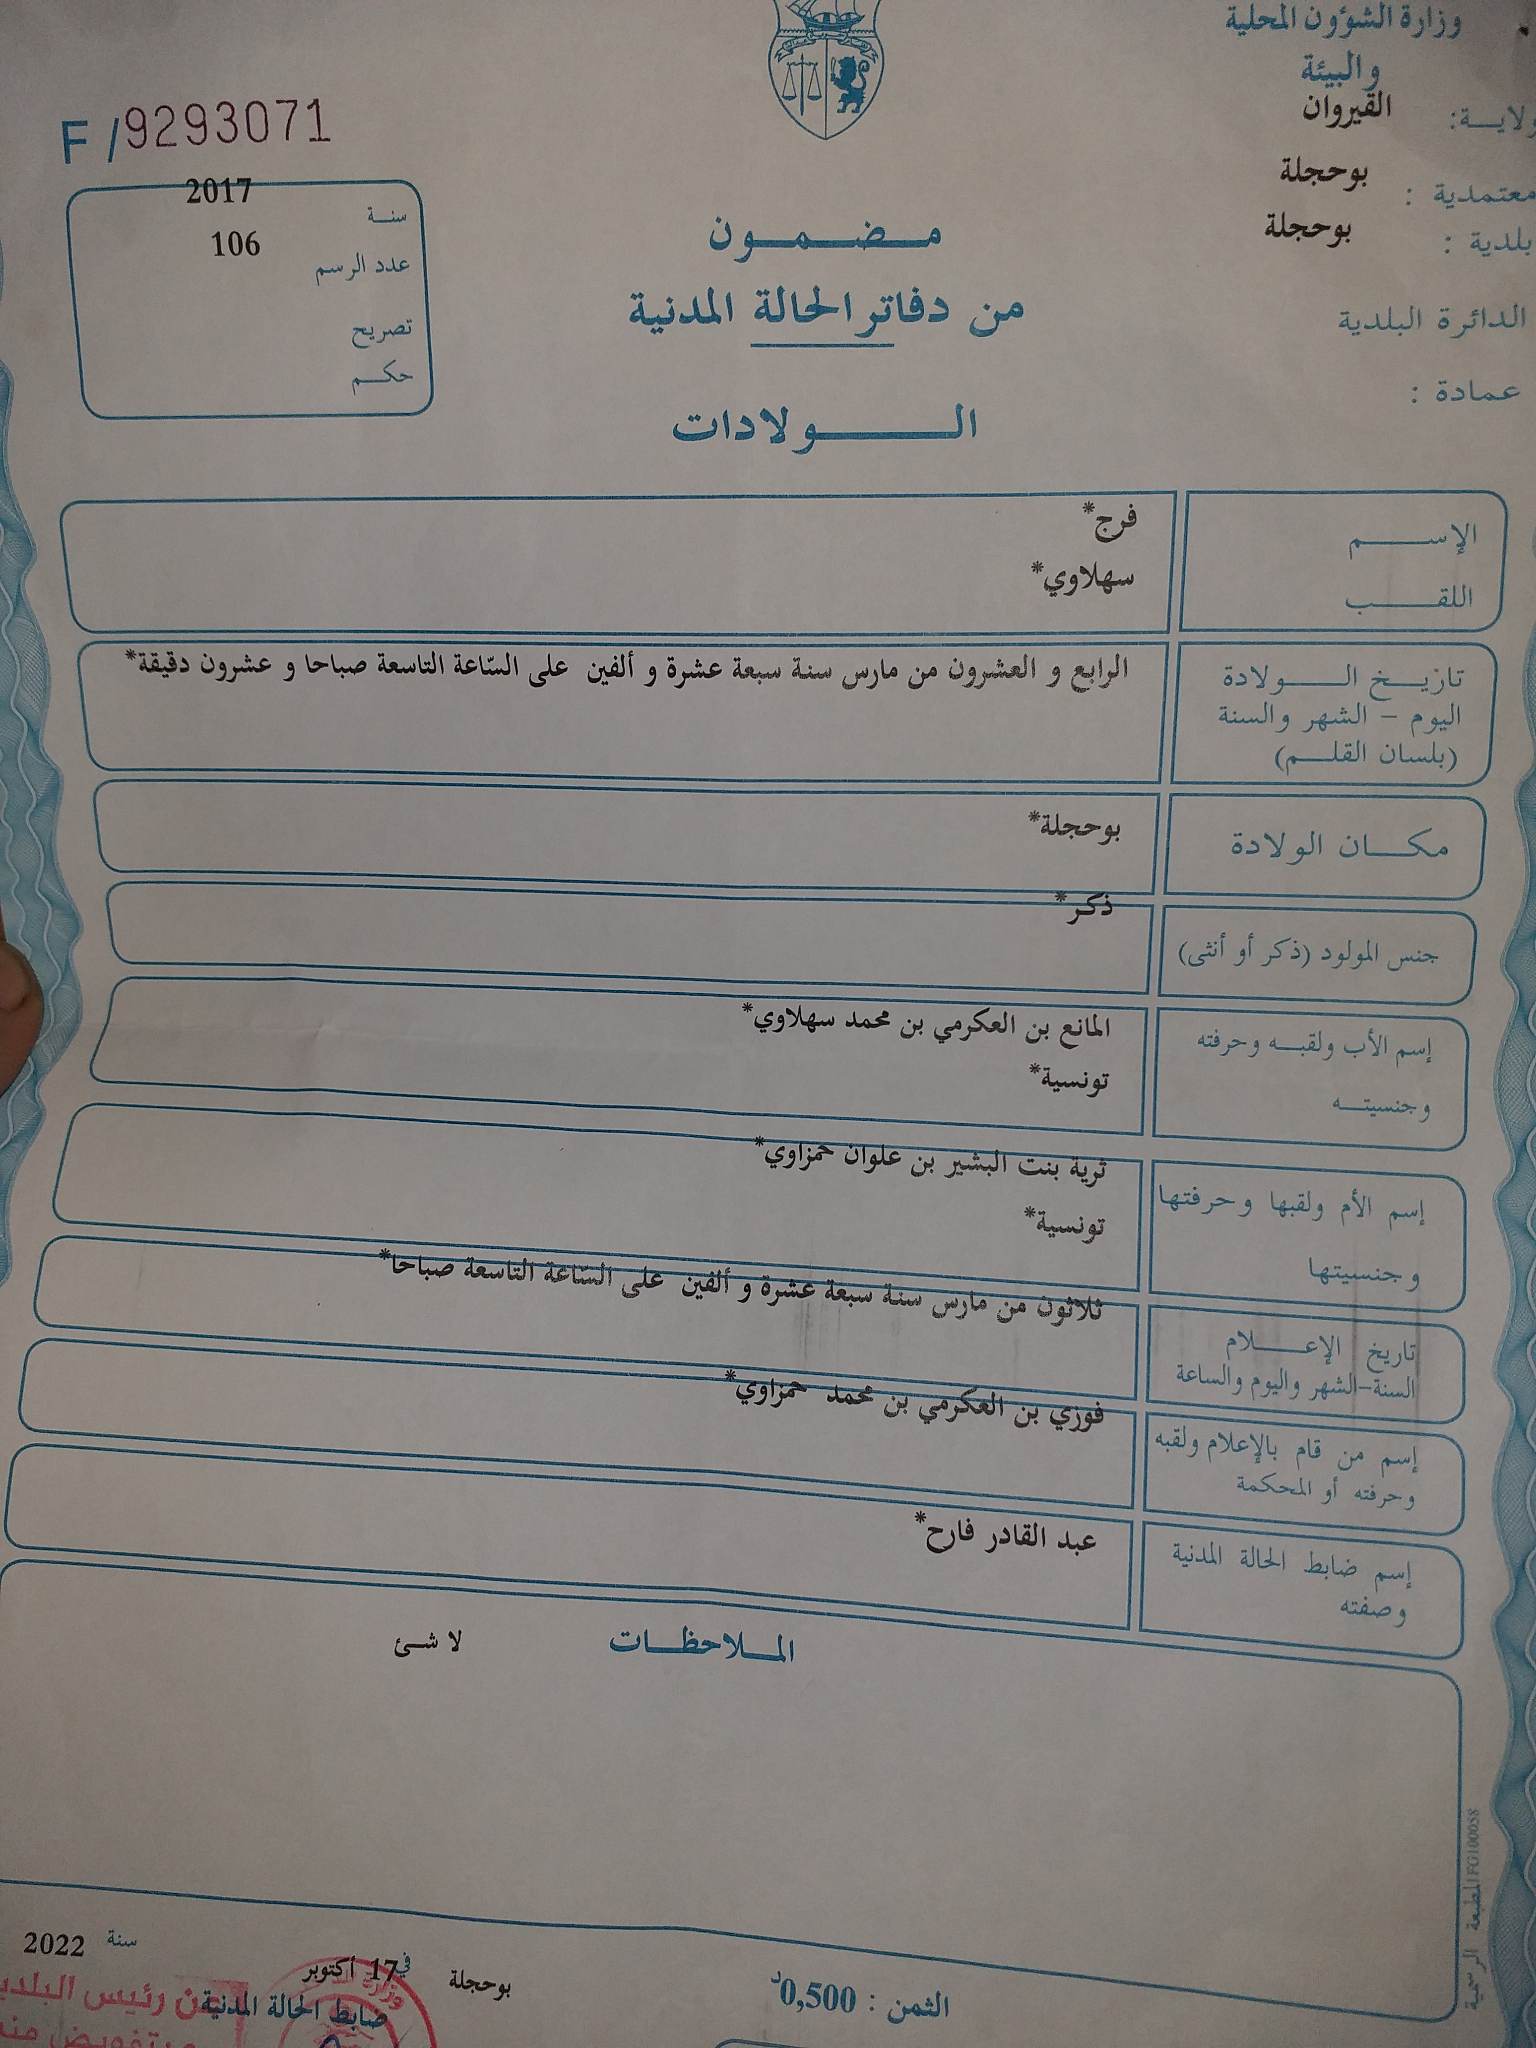 وزارة الشؤون المحلية
والبيئة
ولايـــة: القيروان
معتمدية : بوحجلة
بلدية : بوحجلة
الدائرة البلدية
عمادة :
F / 9293071
سنـة 2017
عدد الرسم 106
تصريح
حكـــم
مـــضـــمـــون
من دفاتر الحالة المدنية
الـــــولادات
الإســـــم فرج*
اللقـــــب سهلاوي*
تاريـــخ الـــــولادة الرابع و العشرون من مارس سنة سبعة عشرة و ألفين على السّاعة التاسعة صباحا و عشرون دقيقة*
اليوم - الشهر والسنة
(بلسان القلـــم)
مكـــان الولادة بوحجلة*
جنس المولود (ذكر أو أنثى) ذكر*
إسم الأب ولقبـــه وحرفته المانع بن العكرمي بن محمد سهلاوي*
وجنسيتـــه تونسية*
إسم الأم ولقبها وحرفتها ثرية بنت البشير بن علوان حمزاوي*
وجنسيتها تونسية*
تاريخ الإعـــــلام ثلاثون من مارس سنة سبعة عشرة و ألفين على السّاعة التاسعة صباحا*
السنة-الشهر واليوم والساعة
إسم من قام بالإعلام ولقبه فوزي بن العكرمي بن محمد حمزاوي*
وحرفته أو المحكمة
إسم ضابط الحالة المدنية عبد القادر فارح*
وصفته
المـــلاحظـــات لا شئ
المطبعة الرسمية FG100058
بوحجلة في 17 أكتوبر سنة 2022
ضابط الحالة المدنية
عن رئيس البلدية
الثمن : 0,500د